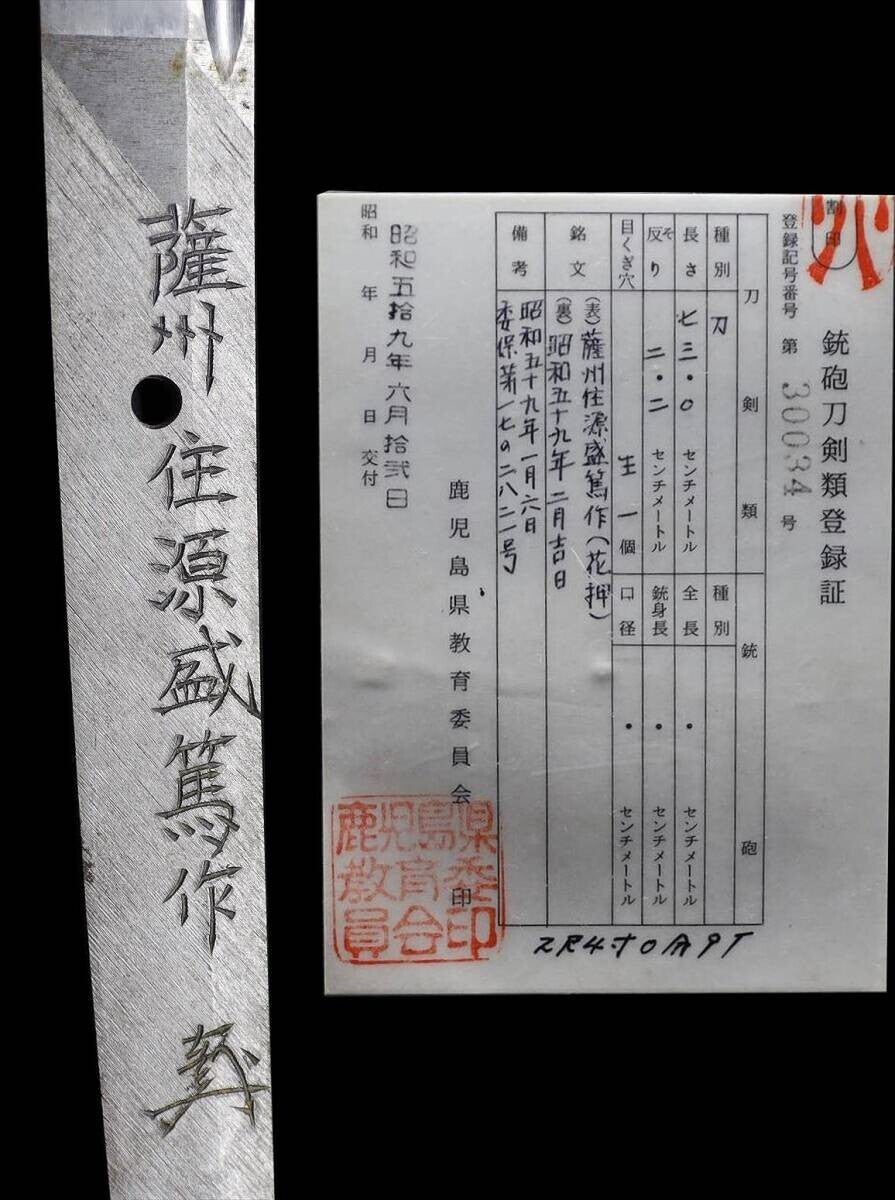 薩州住源盛篤作
銃砲刀剣類登録証
割印
登録記号番号 第 30034 号
刀剣類
銃砲
種別 刀
種別
長さ 七三・〇 センチメートル
全長 ・ センチメートル
反り そ 二・二 センチメートル
銃身長 ・ センチメートル
目くぎ穴 生 一個
口径 ・ センチメートル
銘文 (表)薩州住源盛篤作(花押)
(裏)昭和五十九年二月吉日
備考 昭和五十九年一月六日
委保第一七の二八二一号
昭和五拾九年六月拾弐日
昭和 年 月 日 交付
鹿児島県教育委員会 印
鹿児島県
教育委
員会印
2R4寸0分9T